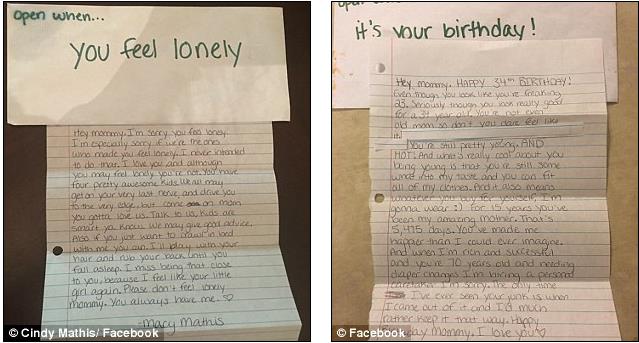 open when...
you feel lonely
Hey mommy. I'm sorry you feel lonely.
I'm especially sorry if we're the ones
who made you feel lonely. I never intended
to do that. I love you and although
you may feel lonely you're not. You have
four pretty awesome kids. We all may
get on your very last nerve, and drive you
to the very edge, but come on mom
you gotta love us. Talk to us, kids are
smart ya know. We may give good advice.
Also if you just want to crawl in bed
with me you can. I'll play with your
hair and rub your back until you
fall asleep. I miss being that close
to you, because I feel like your little
girl again. Please don't feel lonely
mommy. You always have me. ♡
-Macy Mathis
© Cindy Mathis/ Facebook
open when
it's your birthday!
Hey mommy. HAPPY 34th BIRTHDAY!
Even though you look like you're freaking
23. Seriously though you look really good
for a 34 year old. You're not even
old mom so don't you dare feel like
it.
You're still pretty young. AND
HOT. And what's really cool about you
being young is that you're still some
what into my taste and you can fit
all of my clothes. And it also means
whatever you buy for yourself, I'm
gonna wear :) For 15 years you've
been my amazing mother. That's
5,475 days. You've made me
happier than I could ever imagine.
And when I'm rich and successful
and you're 70 years old and needing
diaper changes I'm hiring a personal
caretaker I'm sorry. The only time
I've ever been your junk is when
I came out of it and I'd much
rather keep it that way. Happy
Mommy. I love you ♡
© Facebook